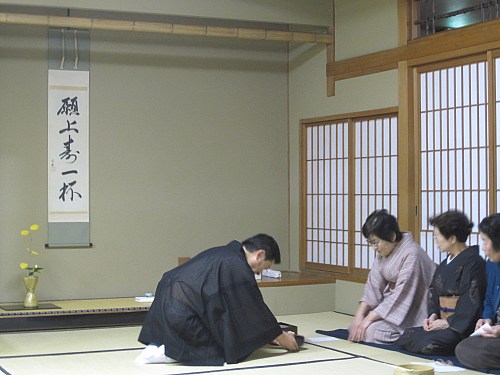 願上寿一杯